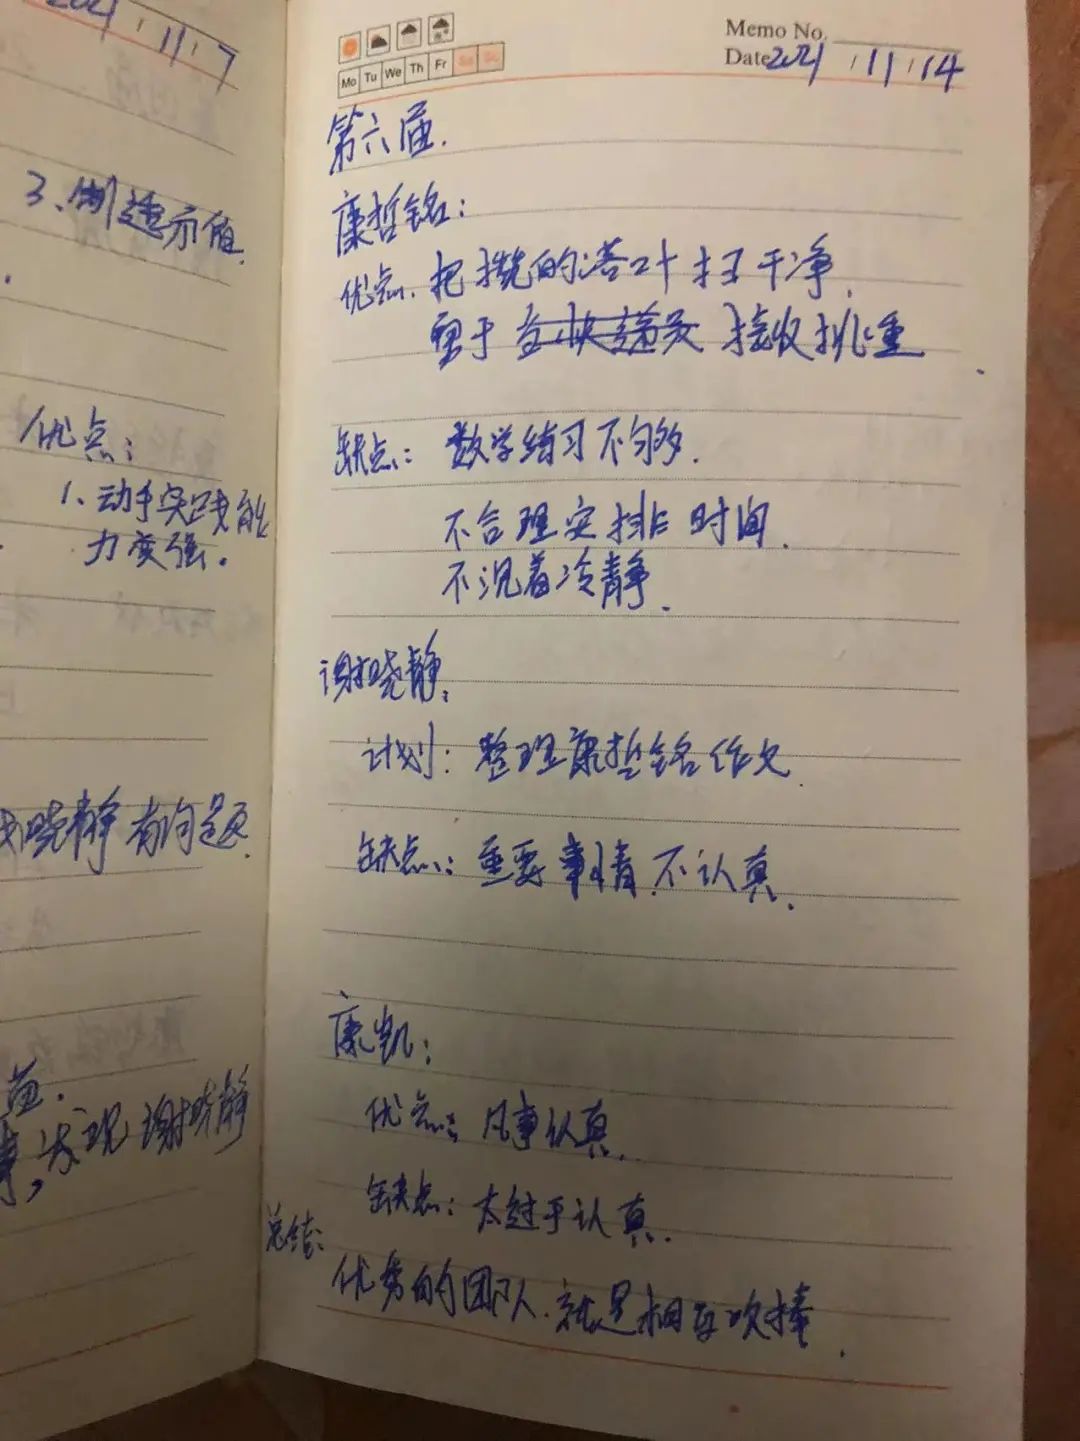 2021 / 11 / 7
3、制造示值
优点：
1、动手实践能
力变强。
晓静有问题
发现谢晓静
Memo No.
Mo Tu We Th Fr Sa Su
Date 2021 / 11 / 14
第六届.
康哲铭：
优点. 把搅的落叶扫干净.
敢于 接收挑重
缺点：数学练习不够.
不合理安排时间.
不沉着冷静.
谢晓静.
计划：整理康哲铭作文.
缺点：重要事情不认真.
康凯：
优点：凡事认真.
缺点：太过于认真.
总结：
优秀的团队.就是相互吹捧.